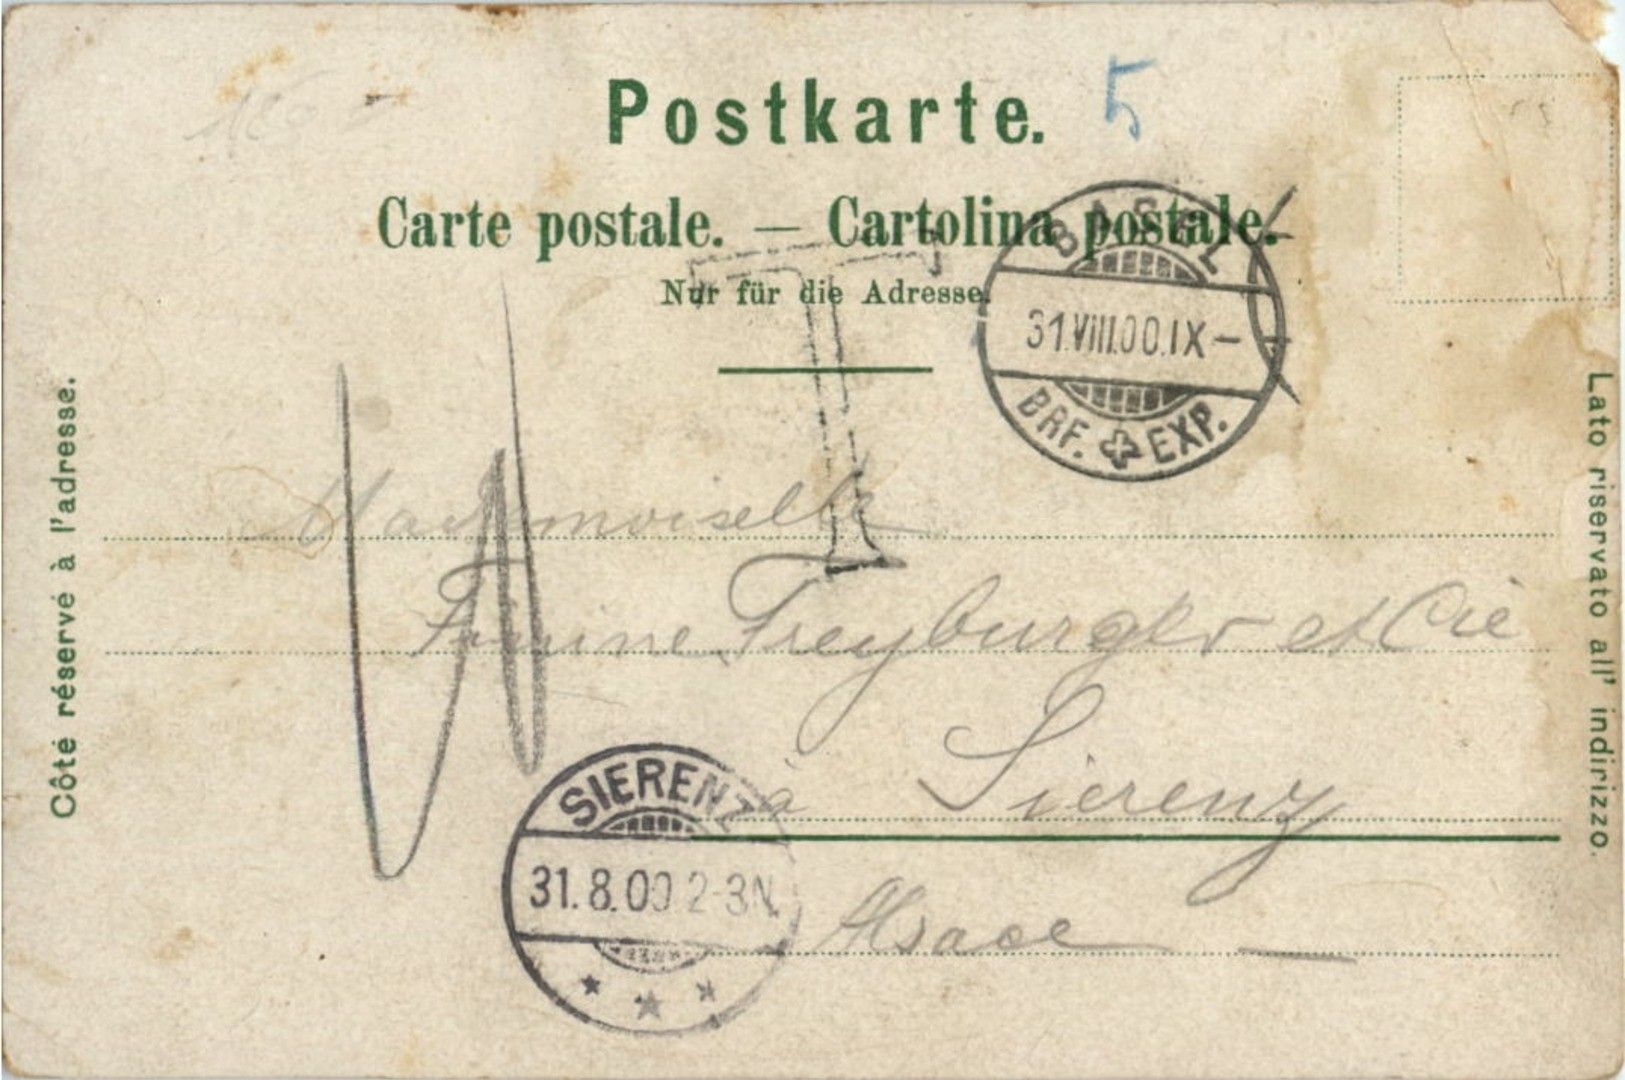 Postkarte. 5
Carte postale. — Cartolina postale.
Nur für die Adresse.
T
BASEL
31.VIII.00.IX–
BRF. EXP.
Côté réservé à l'adresse.
Lato riservato all' indirizzo.
Mademoiselle
Freyburger et Cie
à Sierenz
Alsace
SIERENZ
31.8.00 2-3N